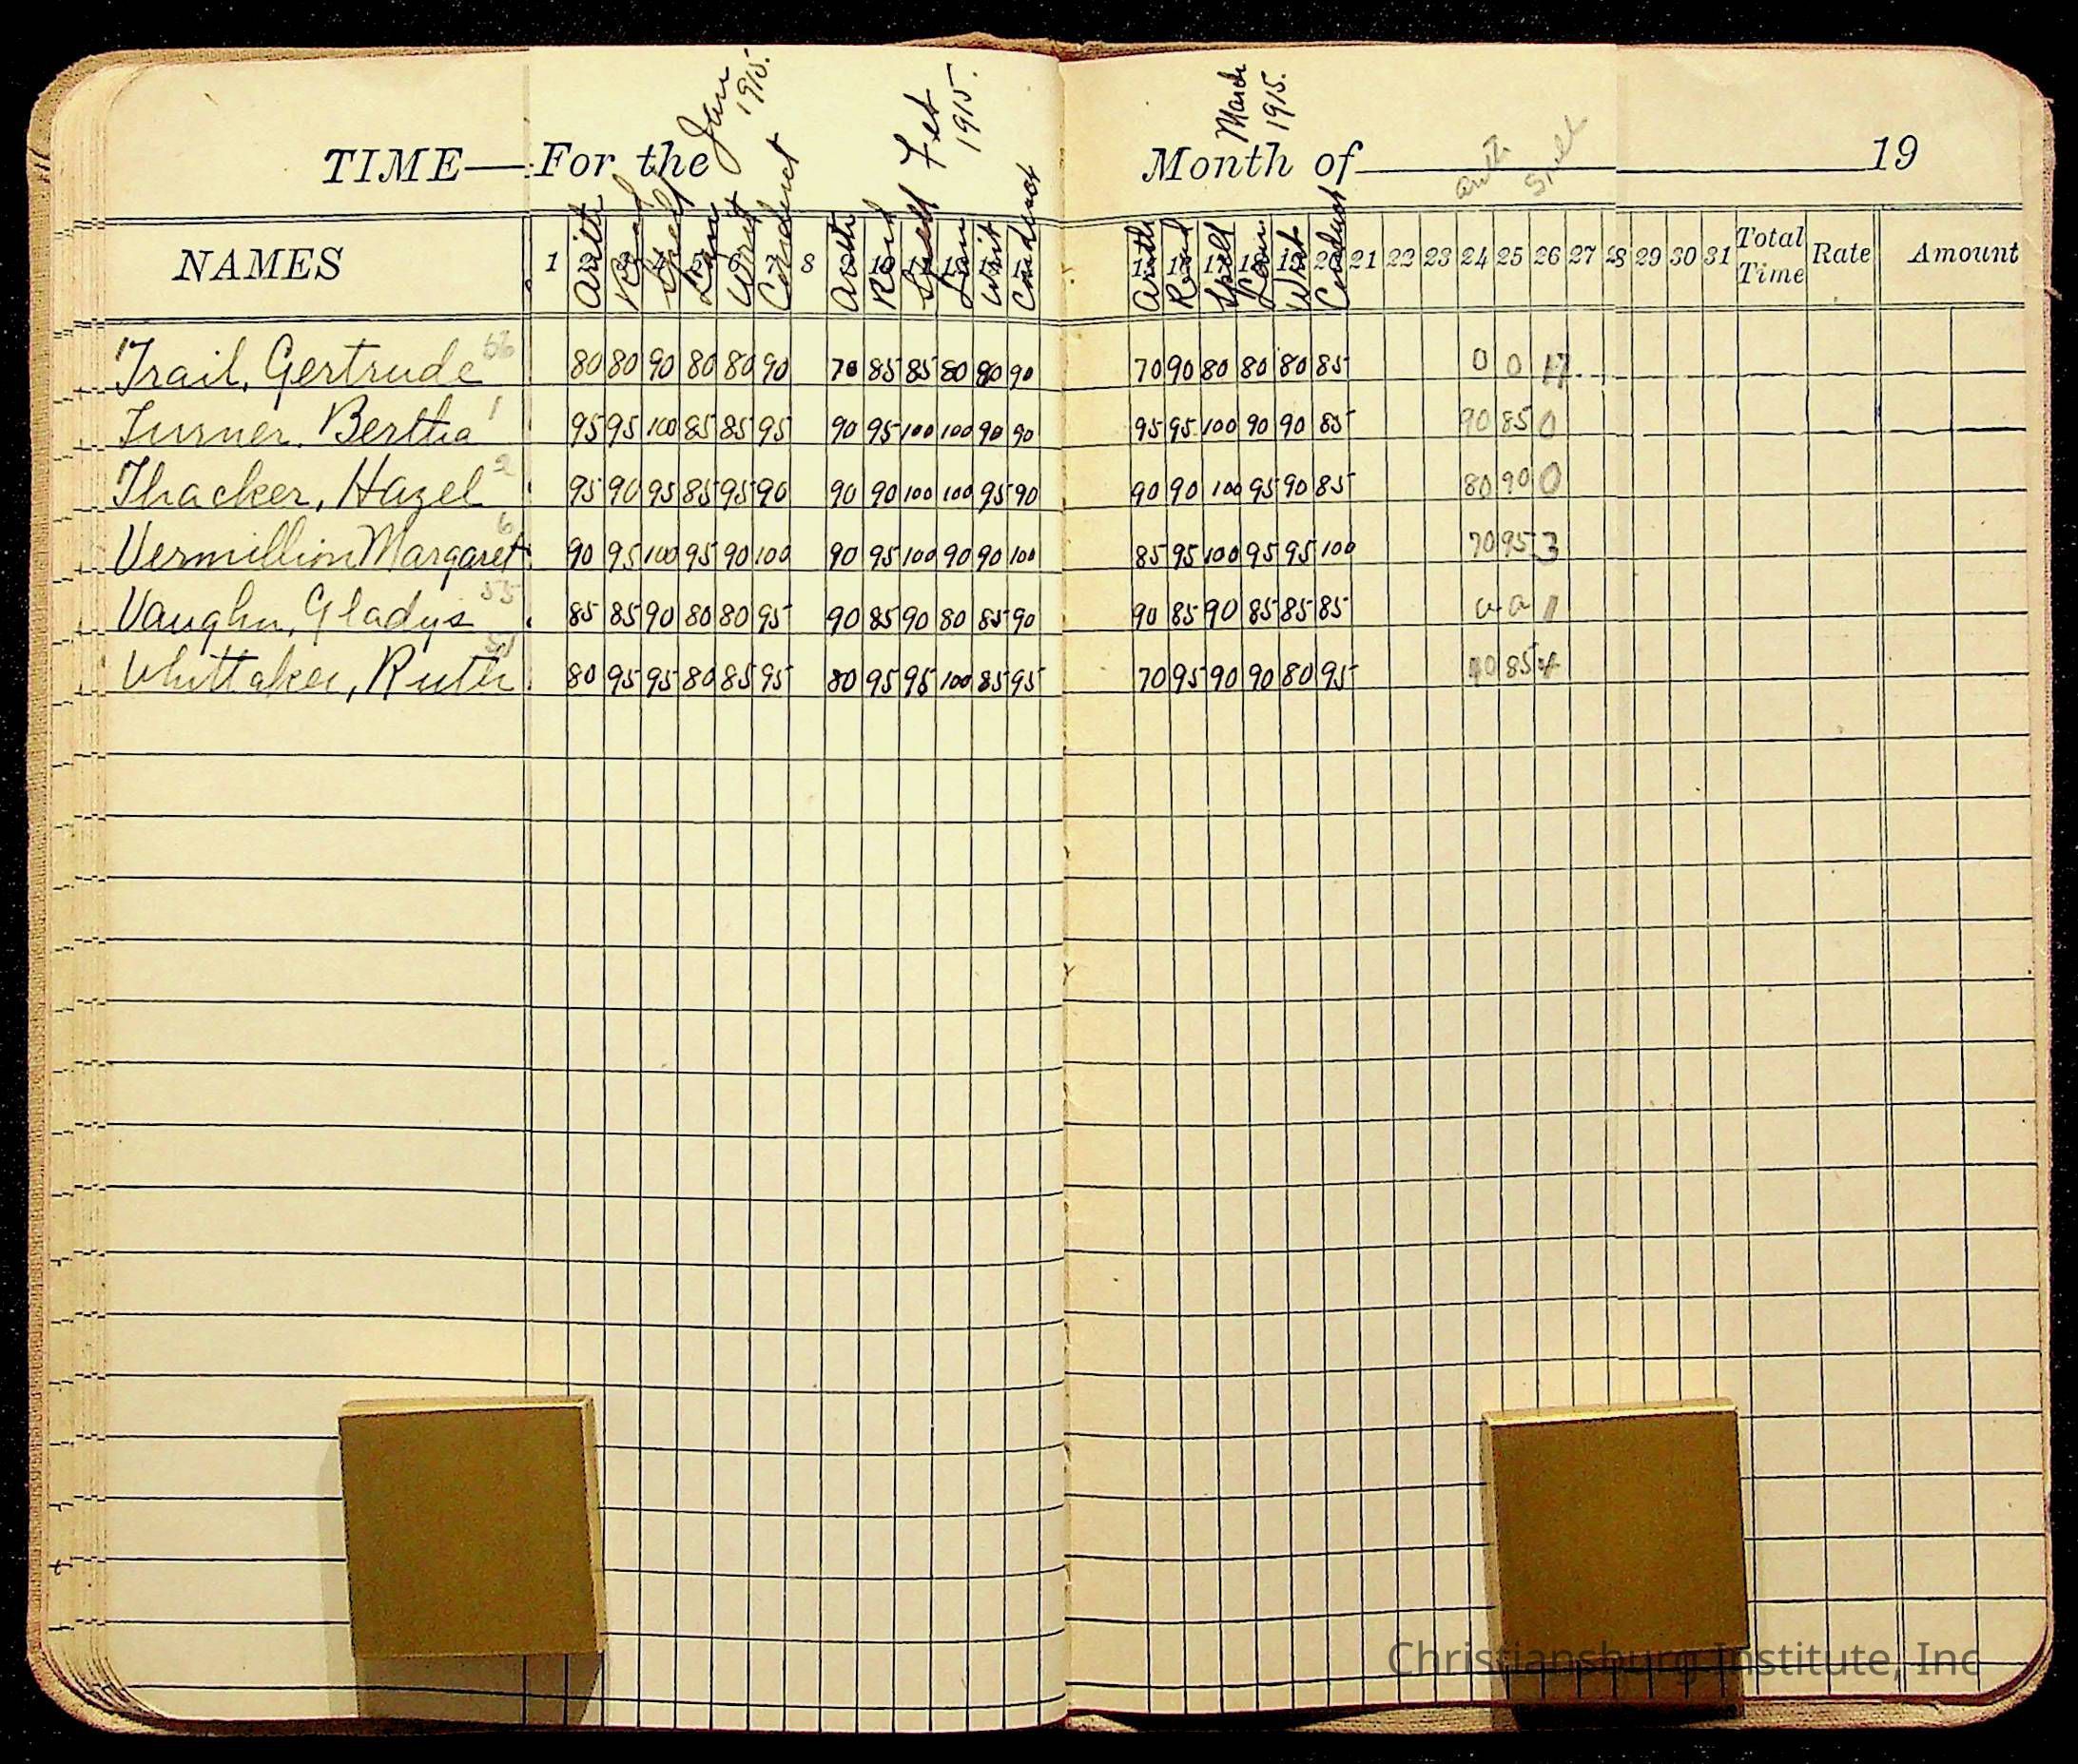 Jan 1915. Feb 1915. March 1915.
TIME—For the Month of 19
Arith Spell
NAMES 1 Arith Read Spell Lan Writ Conduct 8 Arith Read Spell Lan Writ Conduct Arith Read Spell Lan Writ Conduct 21 22 23 24 25 26 27 28 29 30 31 Total Time Rate Amount
Trail, Gertrude 80 80 90 80 80 90 70 85 85 80 80 90 70 90 80 80 80 85 0 0 17
Turner, Bertha 1 95 95 100 85 85 95 90 95 100 100 90 90 95 95 100 90 90 85 90 85 0
Thacker, Hazel 2 95 90 95 85 95 90 90 90 100 100 95 90 90 90 100 95 90 85 80 90 0
Vermillion Margaret 6 90 95 100 95 90 100 90 95 100 90 90 100 85 95 100 95 95 100 70 95 3
Vaughn, Gladys 55 85 85 90 80 80 95 90 85 90 80 85 90 90 85 90 85 85 85 a a 11
Whittaker, Ruth 80 95 95 80 85 95 80 95 95 100 85 95 70 95 90 90 80 95 85 4
Christiansburg Institute, Inc